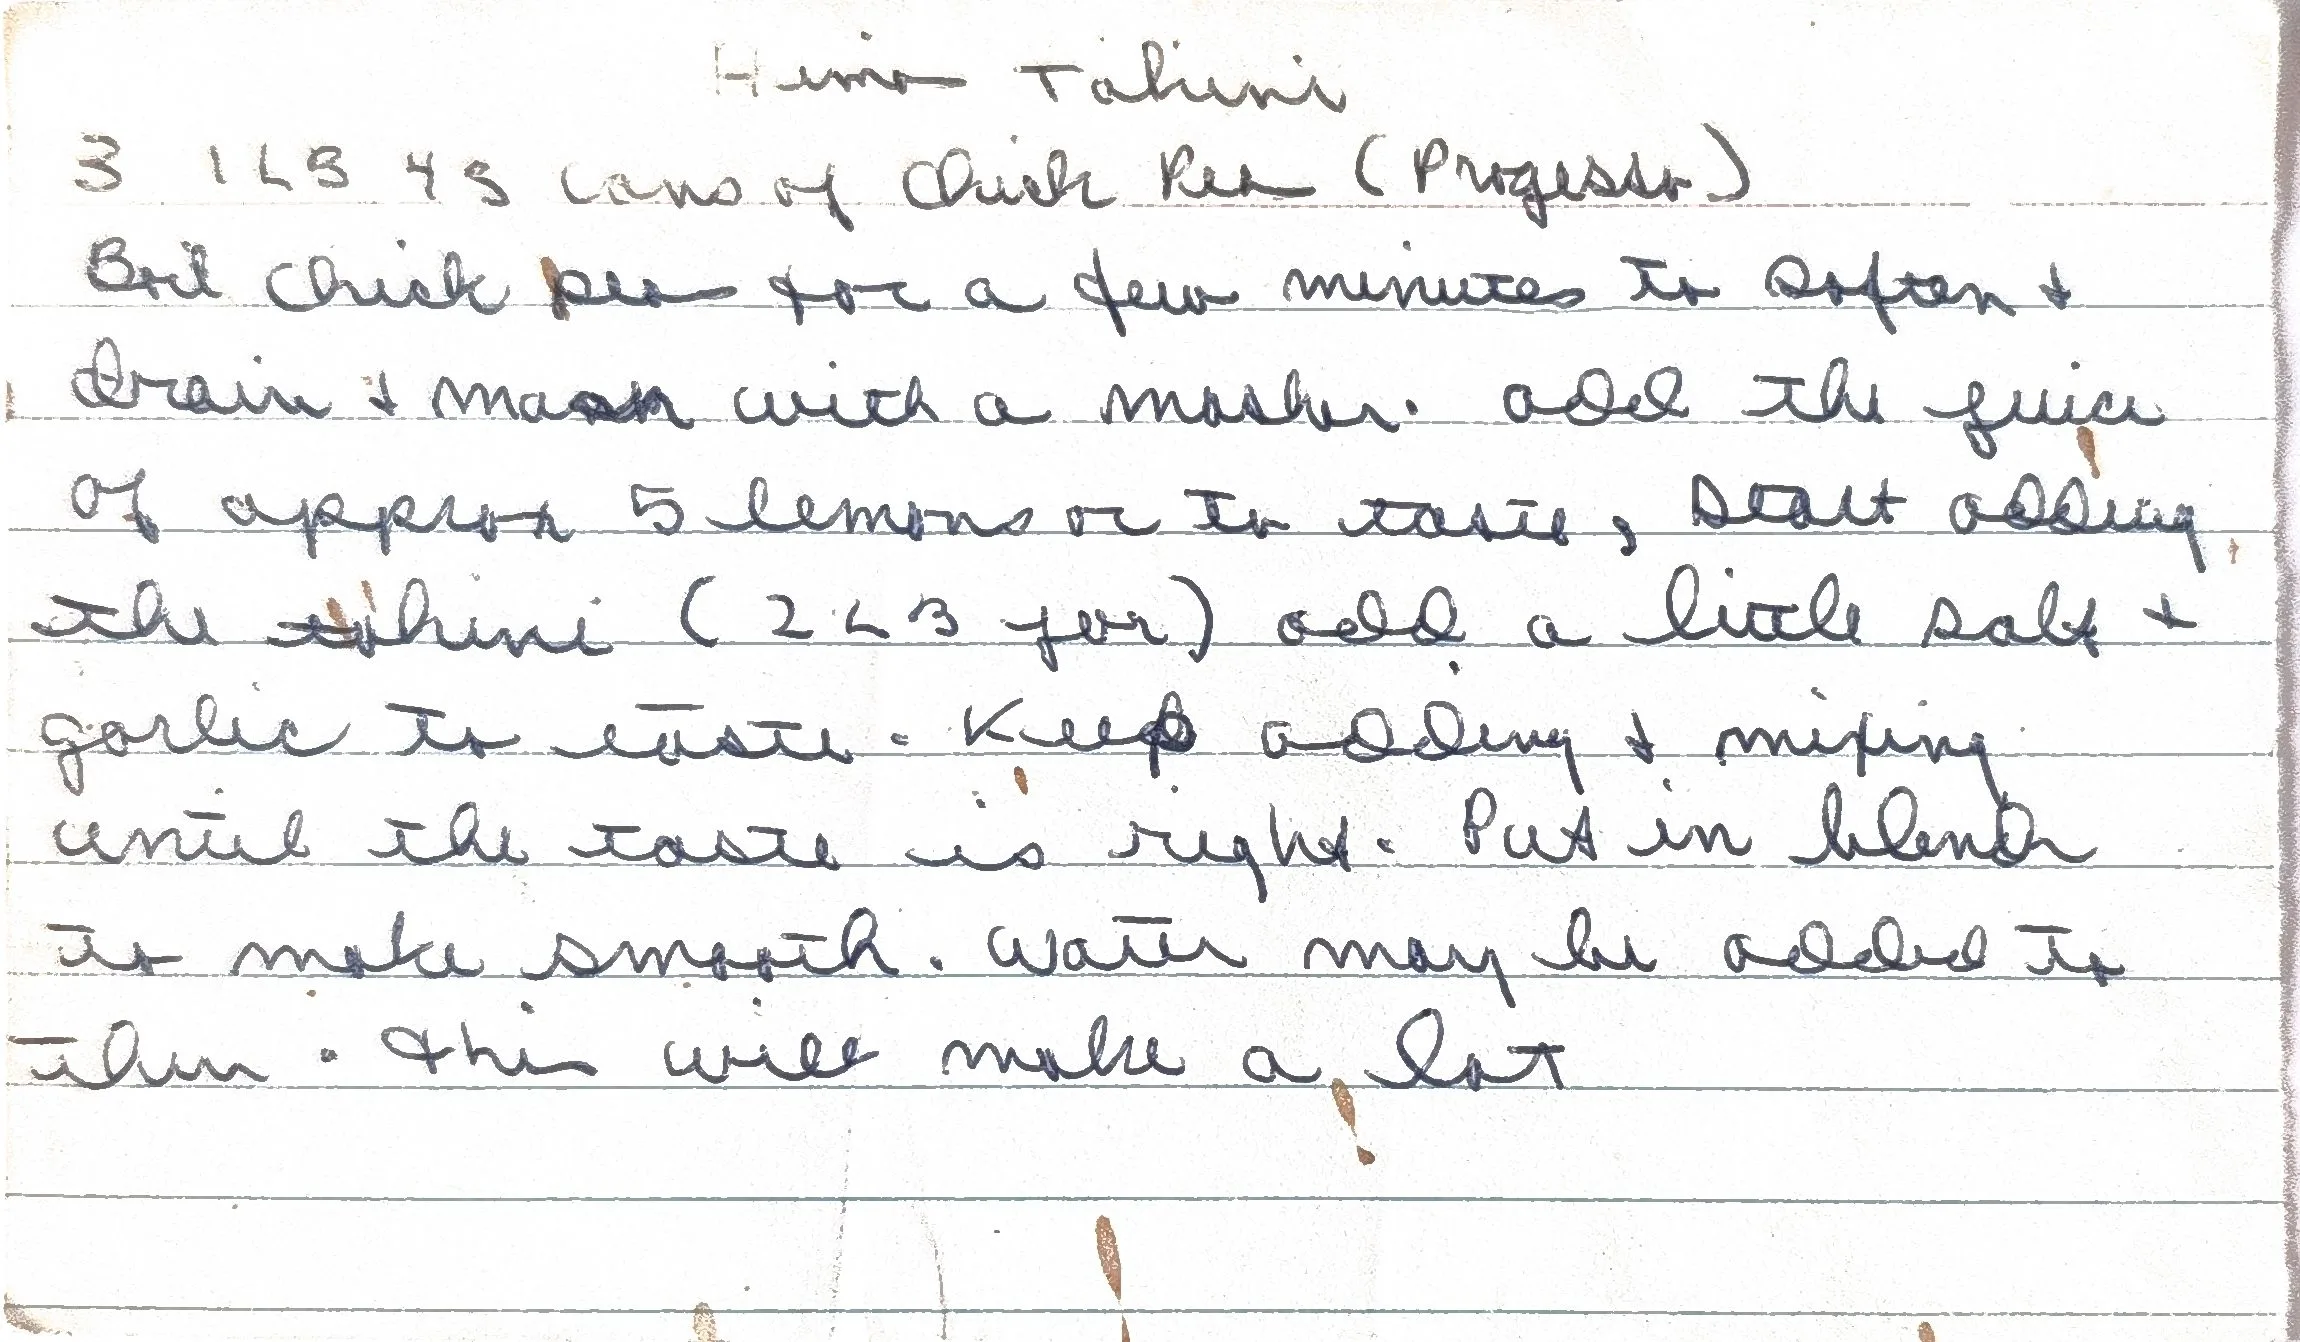 Hima Tahini
3 1 LB 4 3 cans of Chick Pea (Progesso)
Boil Chick pea for a few minutes to soften +
drain + mash with a masher. add the juice
of approx 5 lemons or to taste, start adding
the tahini (2 LB jar) add a little salt +
garlic to taste. Keep adding + mixing
until the taste is right. Put in blendr
to make smooth. Water may be added to
then. this will make a lot